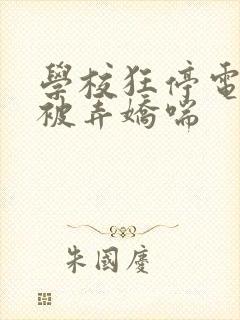 學校狂停電
被弄嬌喘
朱國慶